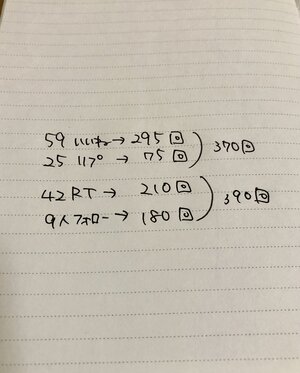 59 いいね → 295回
25 リプ → 75回
370回
42 RT → 210回
9人フォロー → 180回
390回